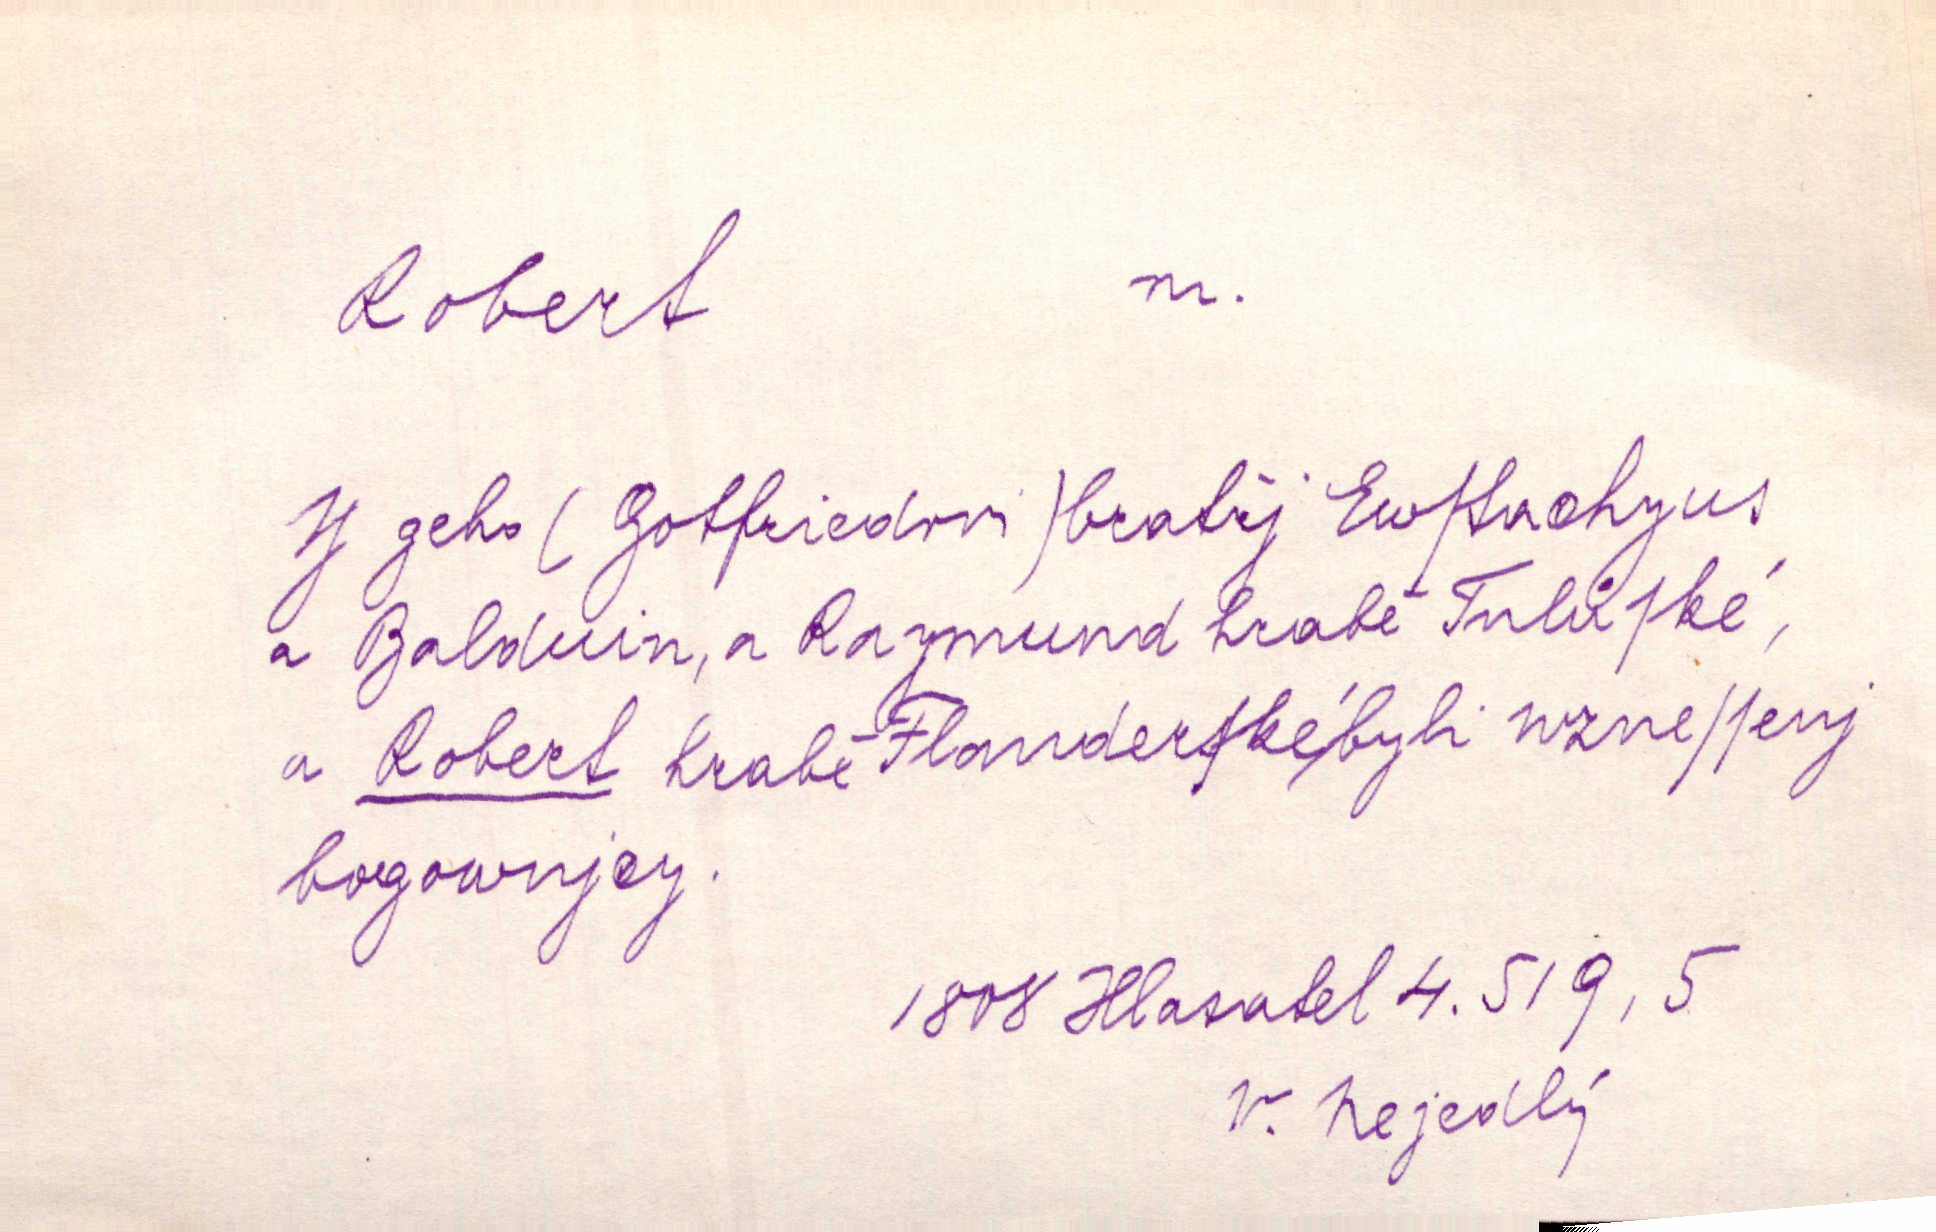 Robert m.
Y geho (Gotfriedovi) bratřj Ewſtachyus
a Balduin, a Raymund hrabě Tulúſké,
a Robert hrabě Flanderſké, byli wzneſſenj
bogownjcy.
1808 Hlasatel 4. 519, 5
V. Nejedlý